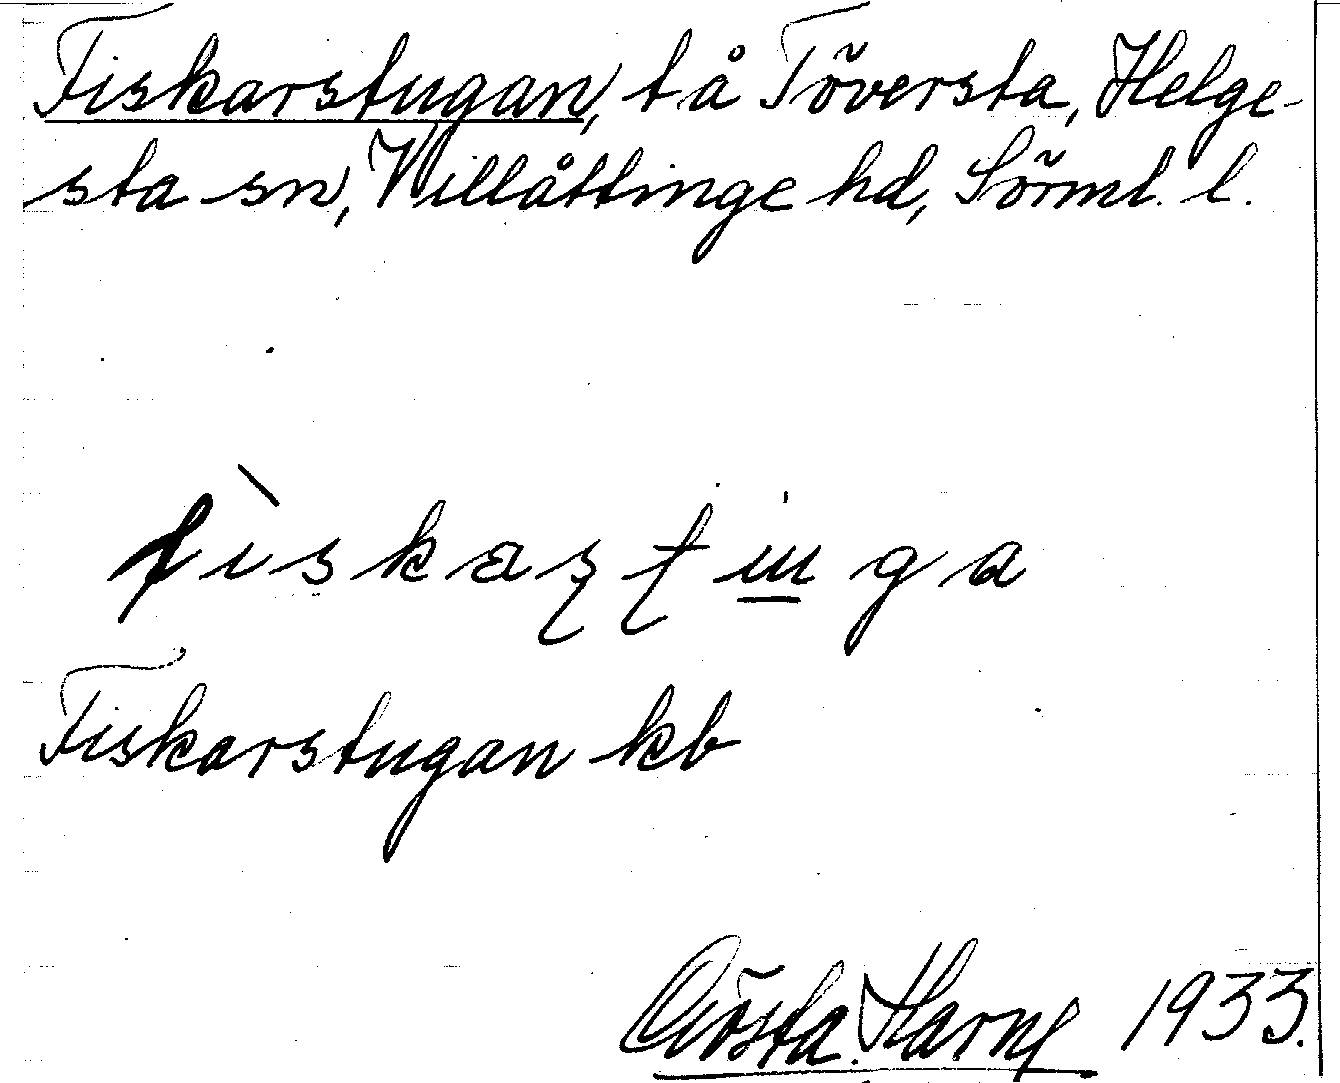 Fiskarstugan, t å Töversta, Helge-
sta sn, Villåttinge hd, Sörml. l.
Fiskarstugan kb
Gösta Harne 1933.